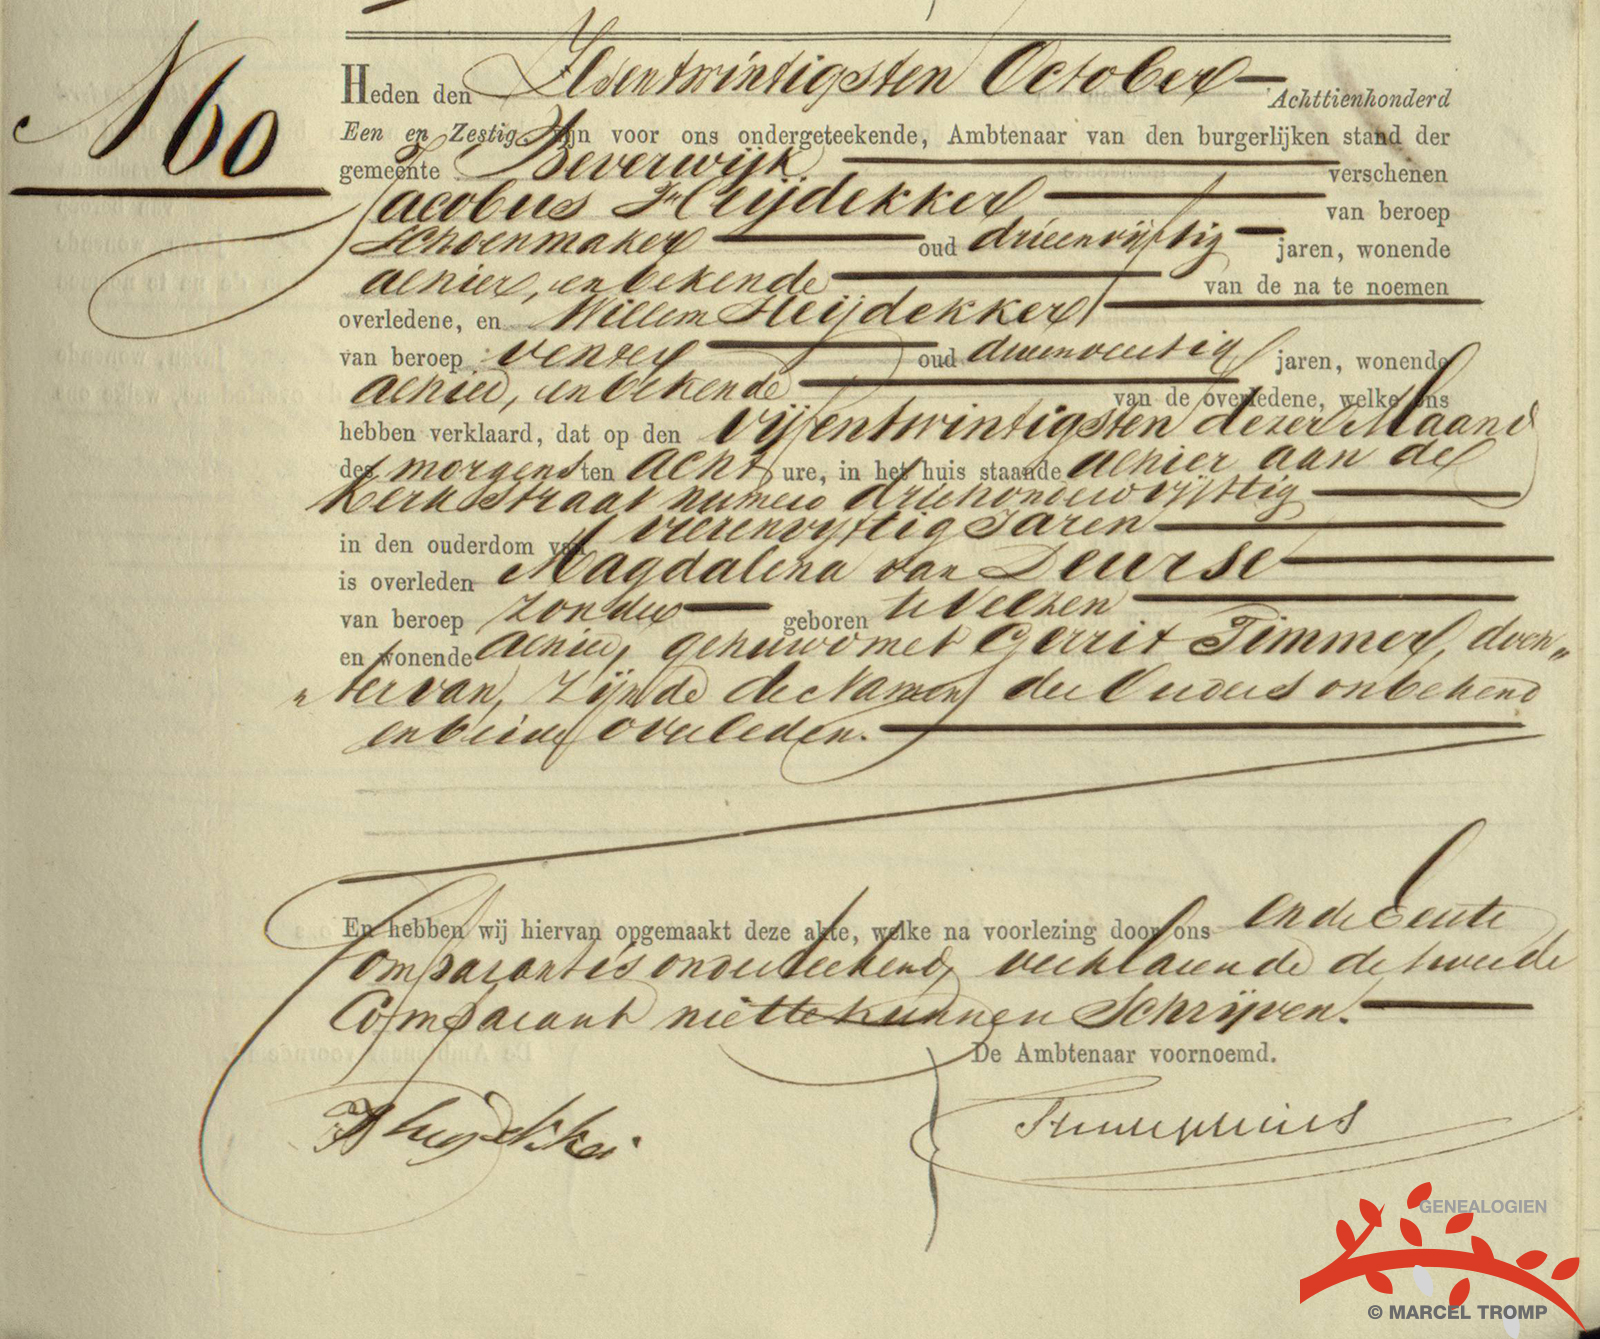 N 60
Heden den Zesentwintigsten October Achttienhonderd
Een en Zestig zijn voor ons ondergeteekende, Ambtenaar van den burgerlijken stand der
gemeente Beverwijk verschenen
Jacobus Heijdekker van beroep
Schoenmaker oud drieenvijftig jaren, wonende
alhier, en bekende van de na te noemen
overledene, en Willem Heijdekker
van beroep venter oud jaren, wonende
alhier, en bekende van de overledene, welke ons
hebben verklaard, dat op den vijfentwintigsten dezer Maand
des morgens ten acht ure, in het huis staande alhier aan de
Kerkstraat numero driehonderd vijftig
in den ouderdom van vierenvijftig Jaren
is overleden Magdalena van Deurse
van beroep zonder geboren te Velzen
en wonende alhier, gehuwd met Gerrit Timmer, doch„
„ter van, zijnde de Namen der Ouders onbekend
en beide overleden.
En hebben wij hiervan opgemaakt deze akte, welke na voorlezing door ons en de Eerste
Comparant is onderteekend, verklarende de tweede
Comparant niet te kunnen Schrijven.
De Ambtenaar voornoemd.
J Heijdekker
GENEALOGIEN
© MARCEL TROMP